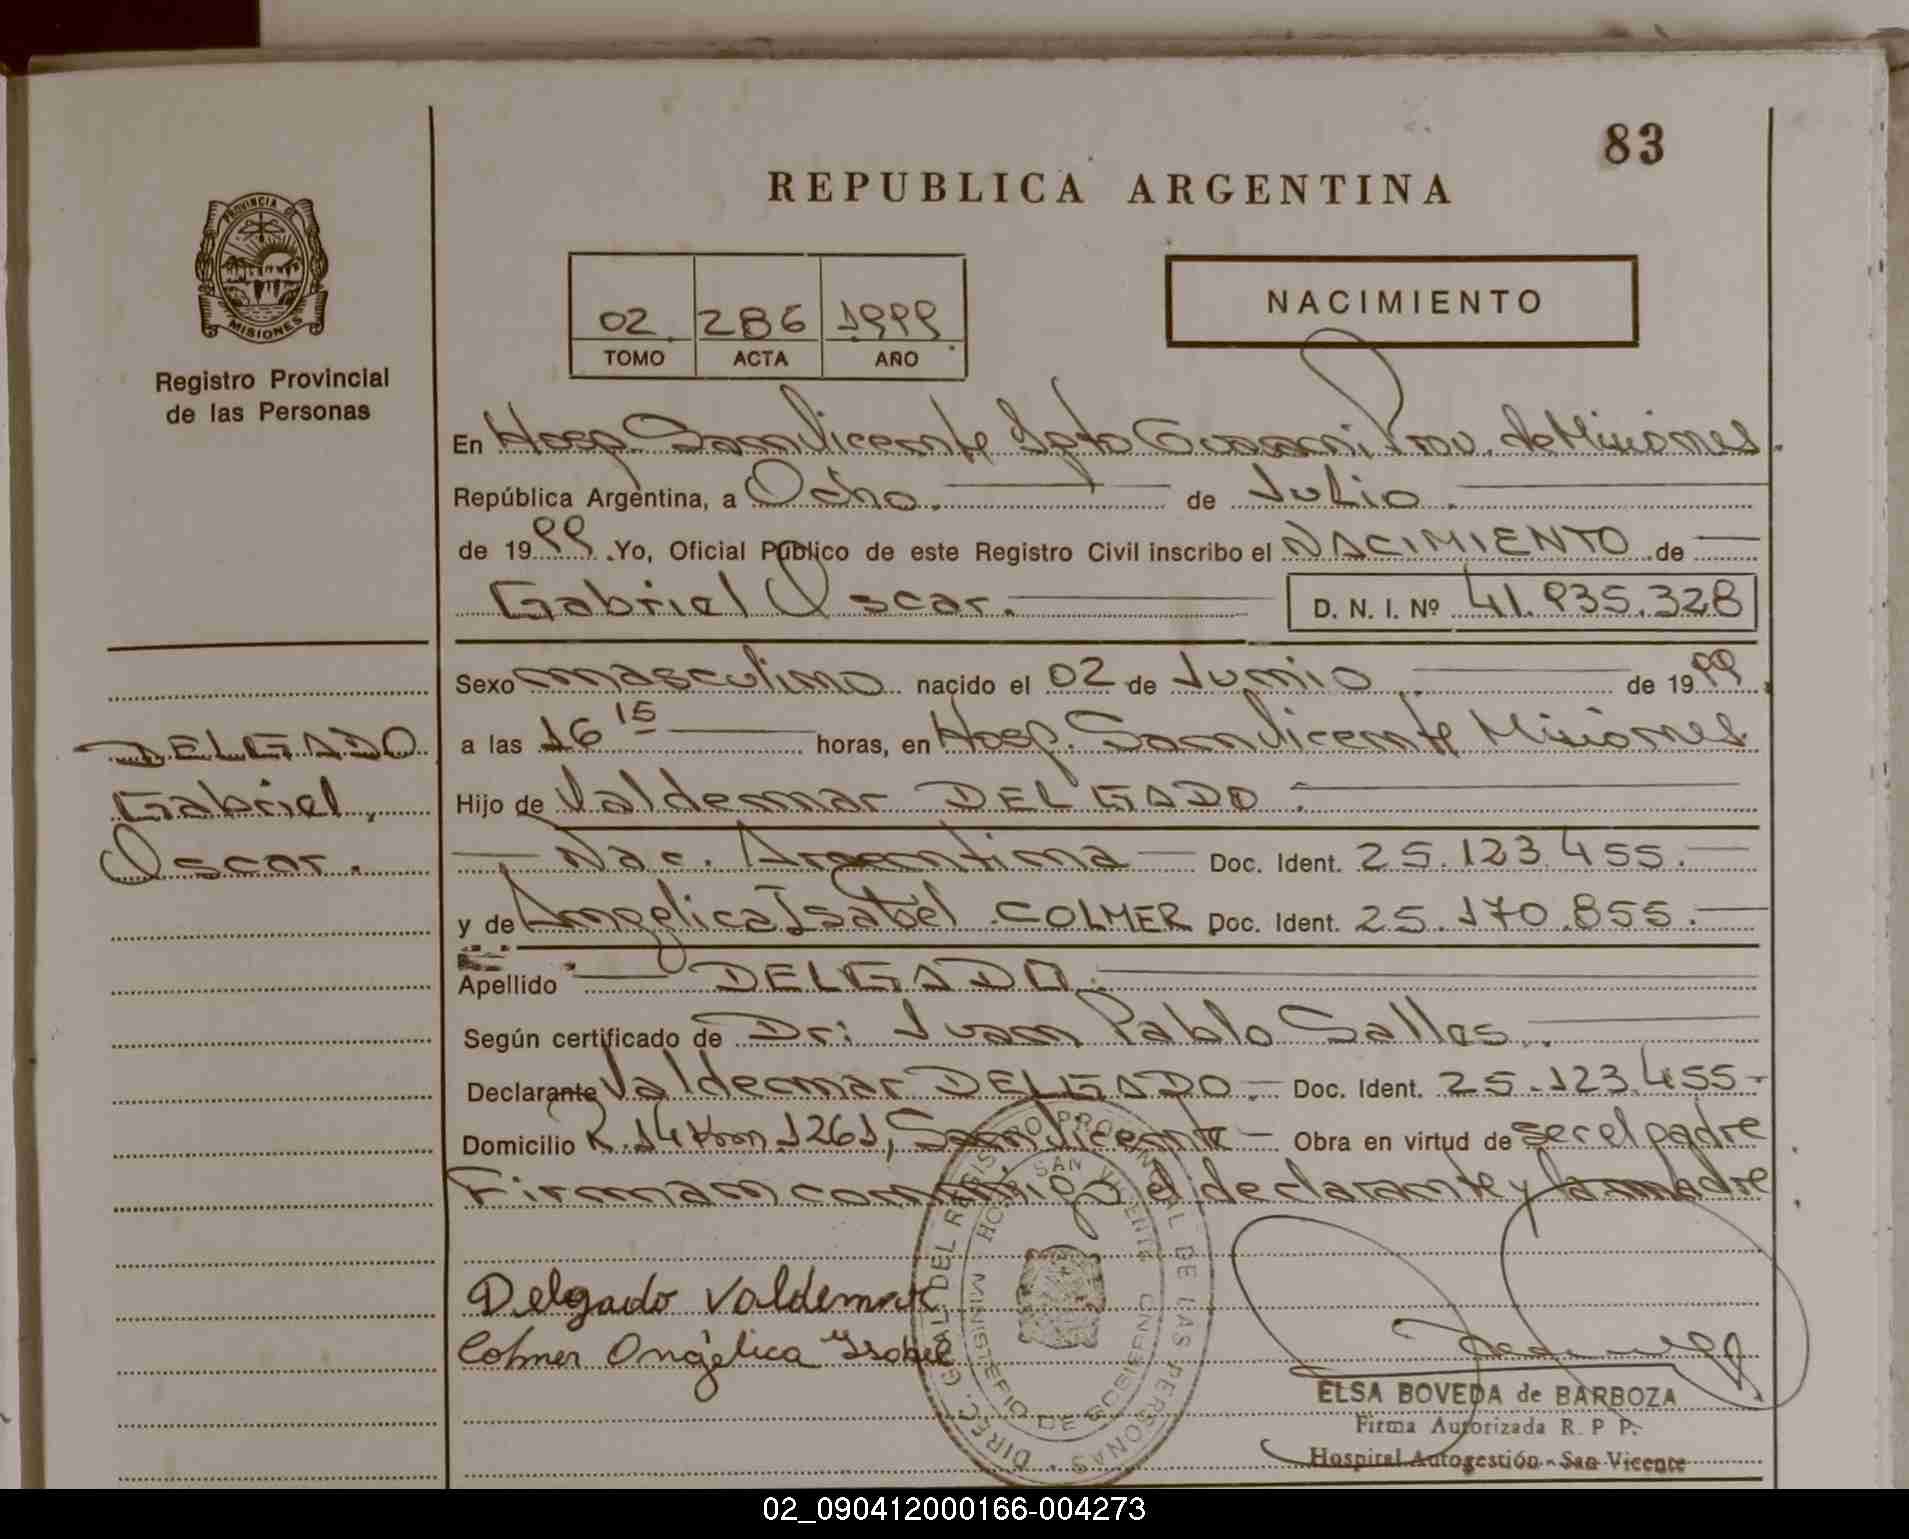 83
REPUBLICA ARGENTINA
PROVINCIA DE
MISIONES
Registro Provincial
de las Personas
02 286 1999
TOMO ACTA AÑO
NACIMIENTO
En Hosp. San Vicente Dpto Guarani Prov. de Misiones.
República Argentina, a Ocho. de Julio.
de 1999. Yo, Oficial Público de este Registro Civil inscribo el NACIMIENTO de
Gabriel Oscar. D. N. I. Nº 41.935.328
Sexo masculino nacido el 02 de Junio de 1999.
a las 16 15 horas, en Hosp. San Vicente Misiones
Hijo de Valdemar DELGADO.
Nac. Argentina Doc. Ident. 25.123.455.
y de Angelica Isabel COLMER Doc. Ident. 25.170.855.
Apellido DELGADO.
Según certificado de Dr: Juan Pablo Salles.
Declarante Valdemar DELGADO. Doc. Ident. 25.123.455-
Domicilio R. 14 Km 1261, San Vicente Obra en virtud de ser el padre
Firman conmigo el declarante y la madre
DELGADO
Gabriel,
Oscar.
Delgado Valdemar
Colmer Angélica Ysabel
DIREC. GRAL DEL REGISTRO PROVINCIAL DE LAS PERSONAS
HOSP. SAN VICENTE
MINISTERIO DE GOBIERNO
ELSA BOVEDA de BARBOZA
Firma Autorizada R. P. P.
Hospital Autogestión - San Vicente
02_090412000166-004273